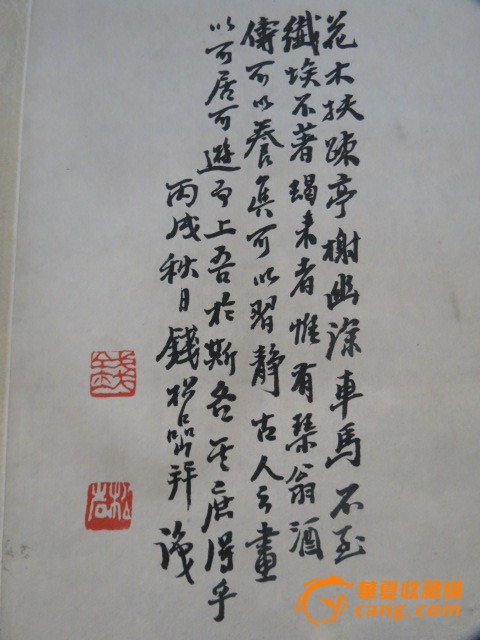 花木扶疎亭榭幽深車馬不至
纖埃不著朅來者惟有琴翁酒
儔可以養真可以習靜古人云畫
以可居可遊為上吾於斯卷其庶得乎
丙戌秋日錢松嵒并識
錢
松岩
華夏收藏網
cang.com